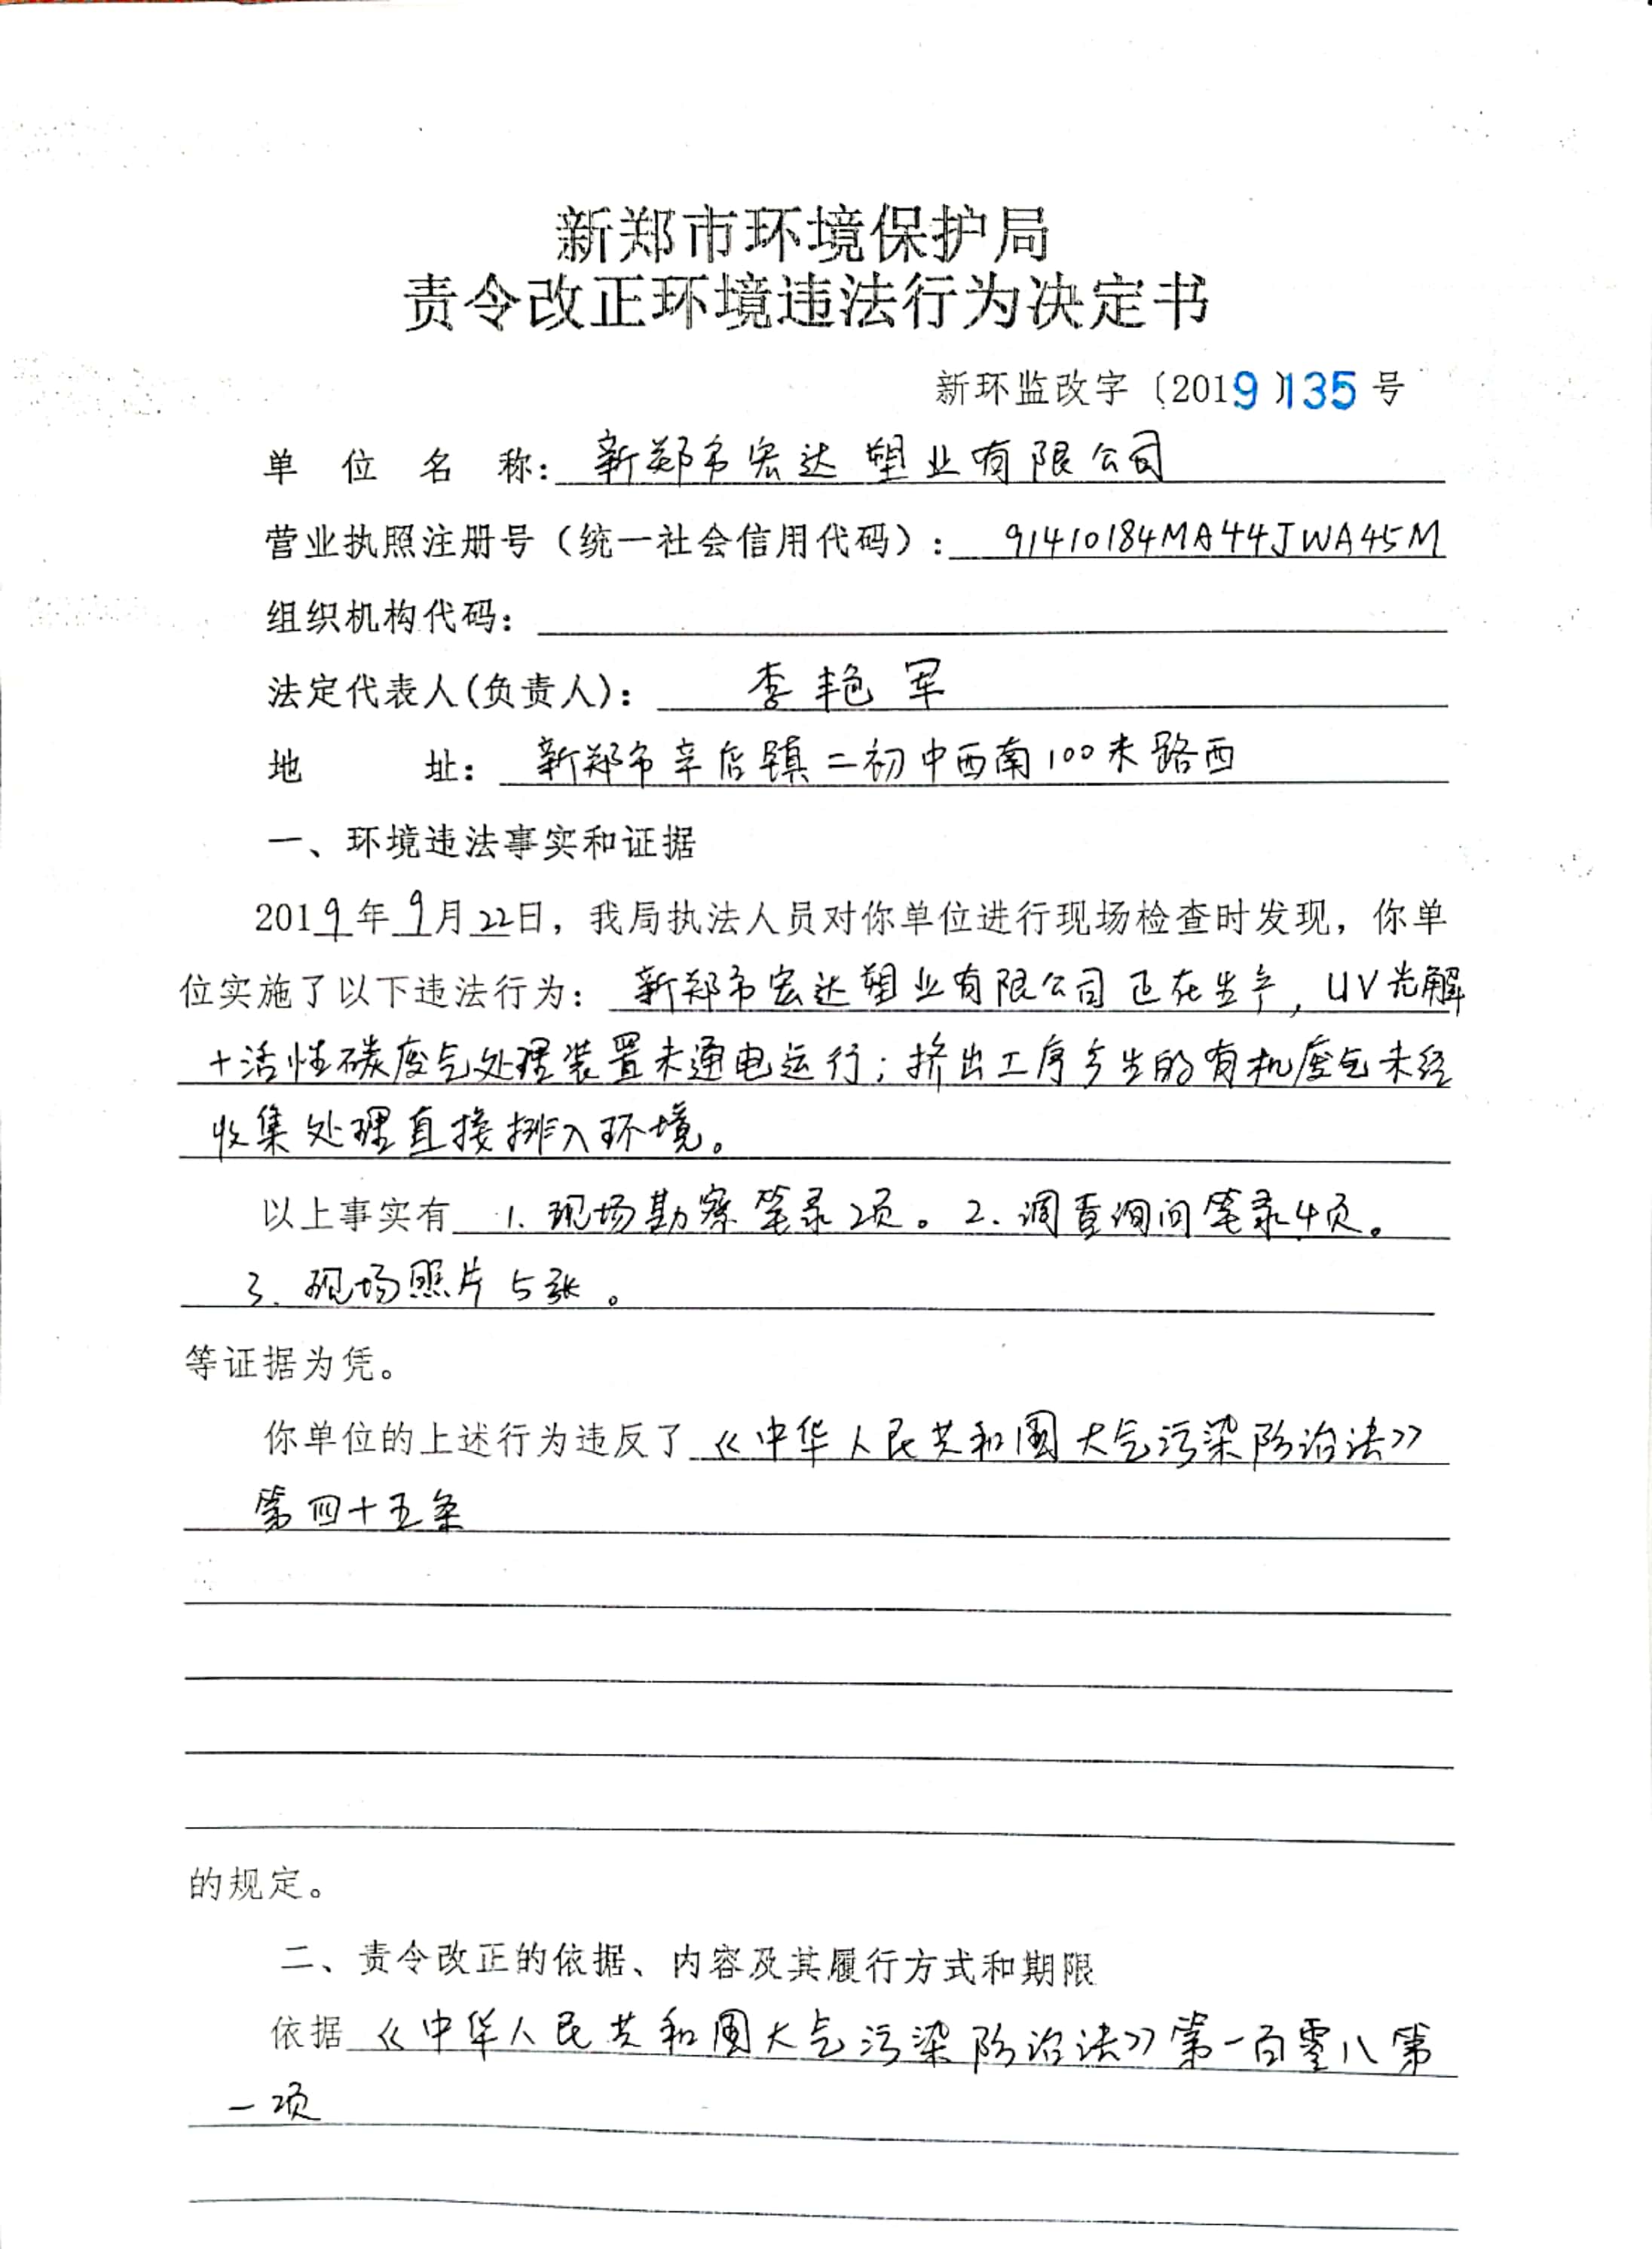 新郑市环境保护局
责令改正环境违法行为决定书
新环监改字〔2019〕135号
单位名称：新郑市宏达塑业有限公司
营业执照注册号（统一社会信用代码）：91410184MA44JWA45M
组织机构代码：
法定代表人（负责人）：李艳军
地址：新郑市辛店镇二初中西南100米路西
一、环境违法事实和证据
2019年9月22日，我局执法人员对你单位进行现场检查时发现，你单
位实施了以下违法行为：新郑市宏达塑业有限公司正在生产，UV光解
+活性碳废气处理装置未通电运行；挤出工序产生的有机废气未经
收集处理直接排入环境。
以上事实有 1.现场勘察笔录2页。2.调查询问笔录4页。
3.现场照片5张。
等证据为凭。
你单位的上述行为违反了《中华人民共和国大气污染防治法》
第四十五条
的规定。
二、责令改正的依据、内容及其履行方式和期限
依据《中华人民共和国大气污染防治法》第一百零八第
一项